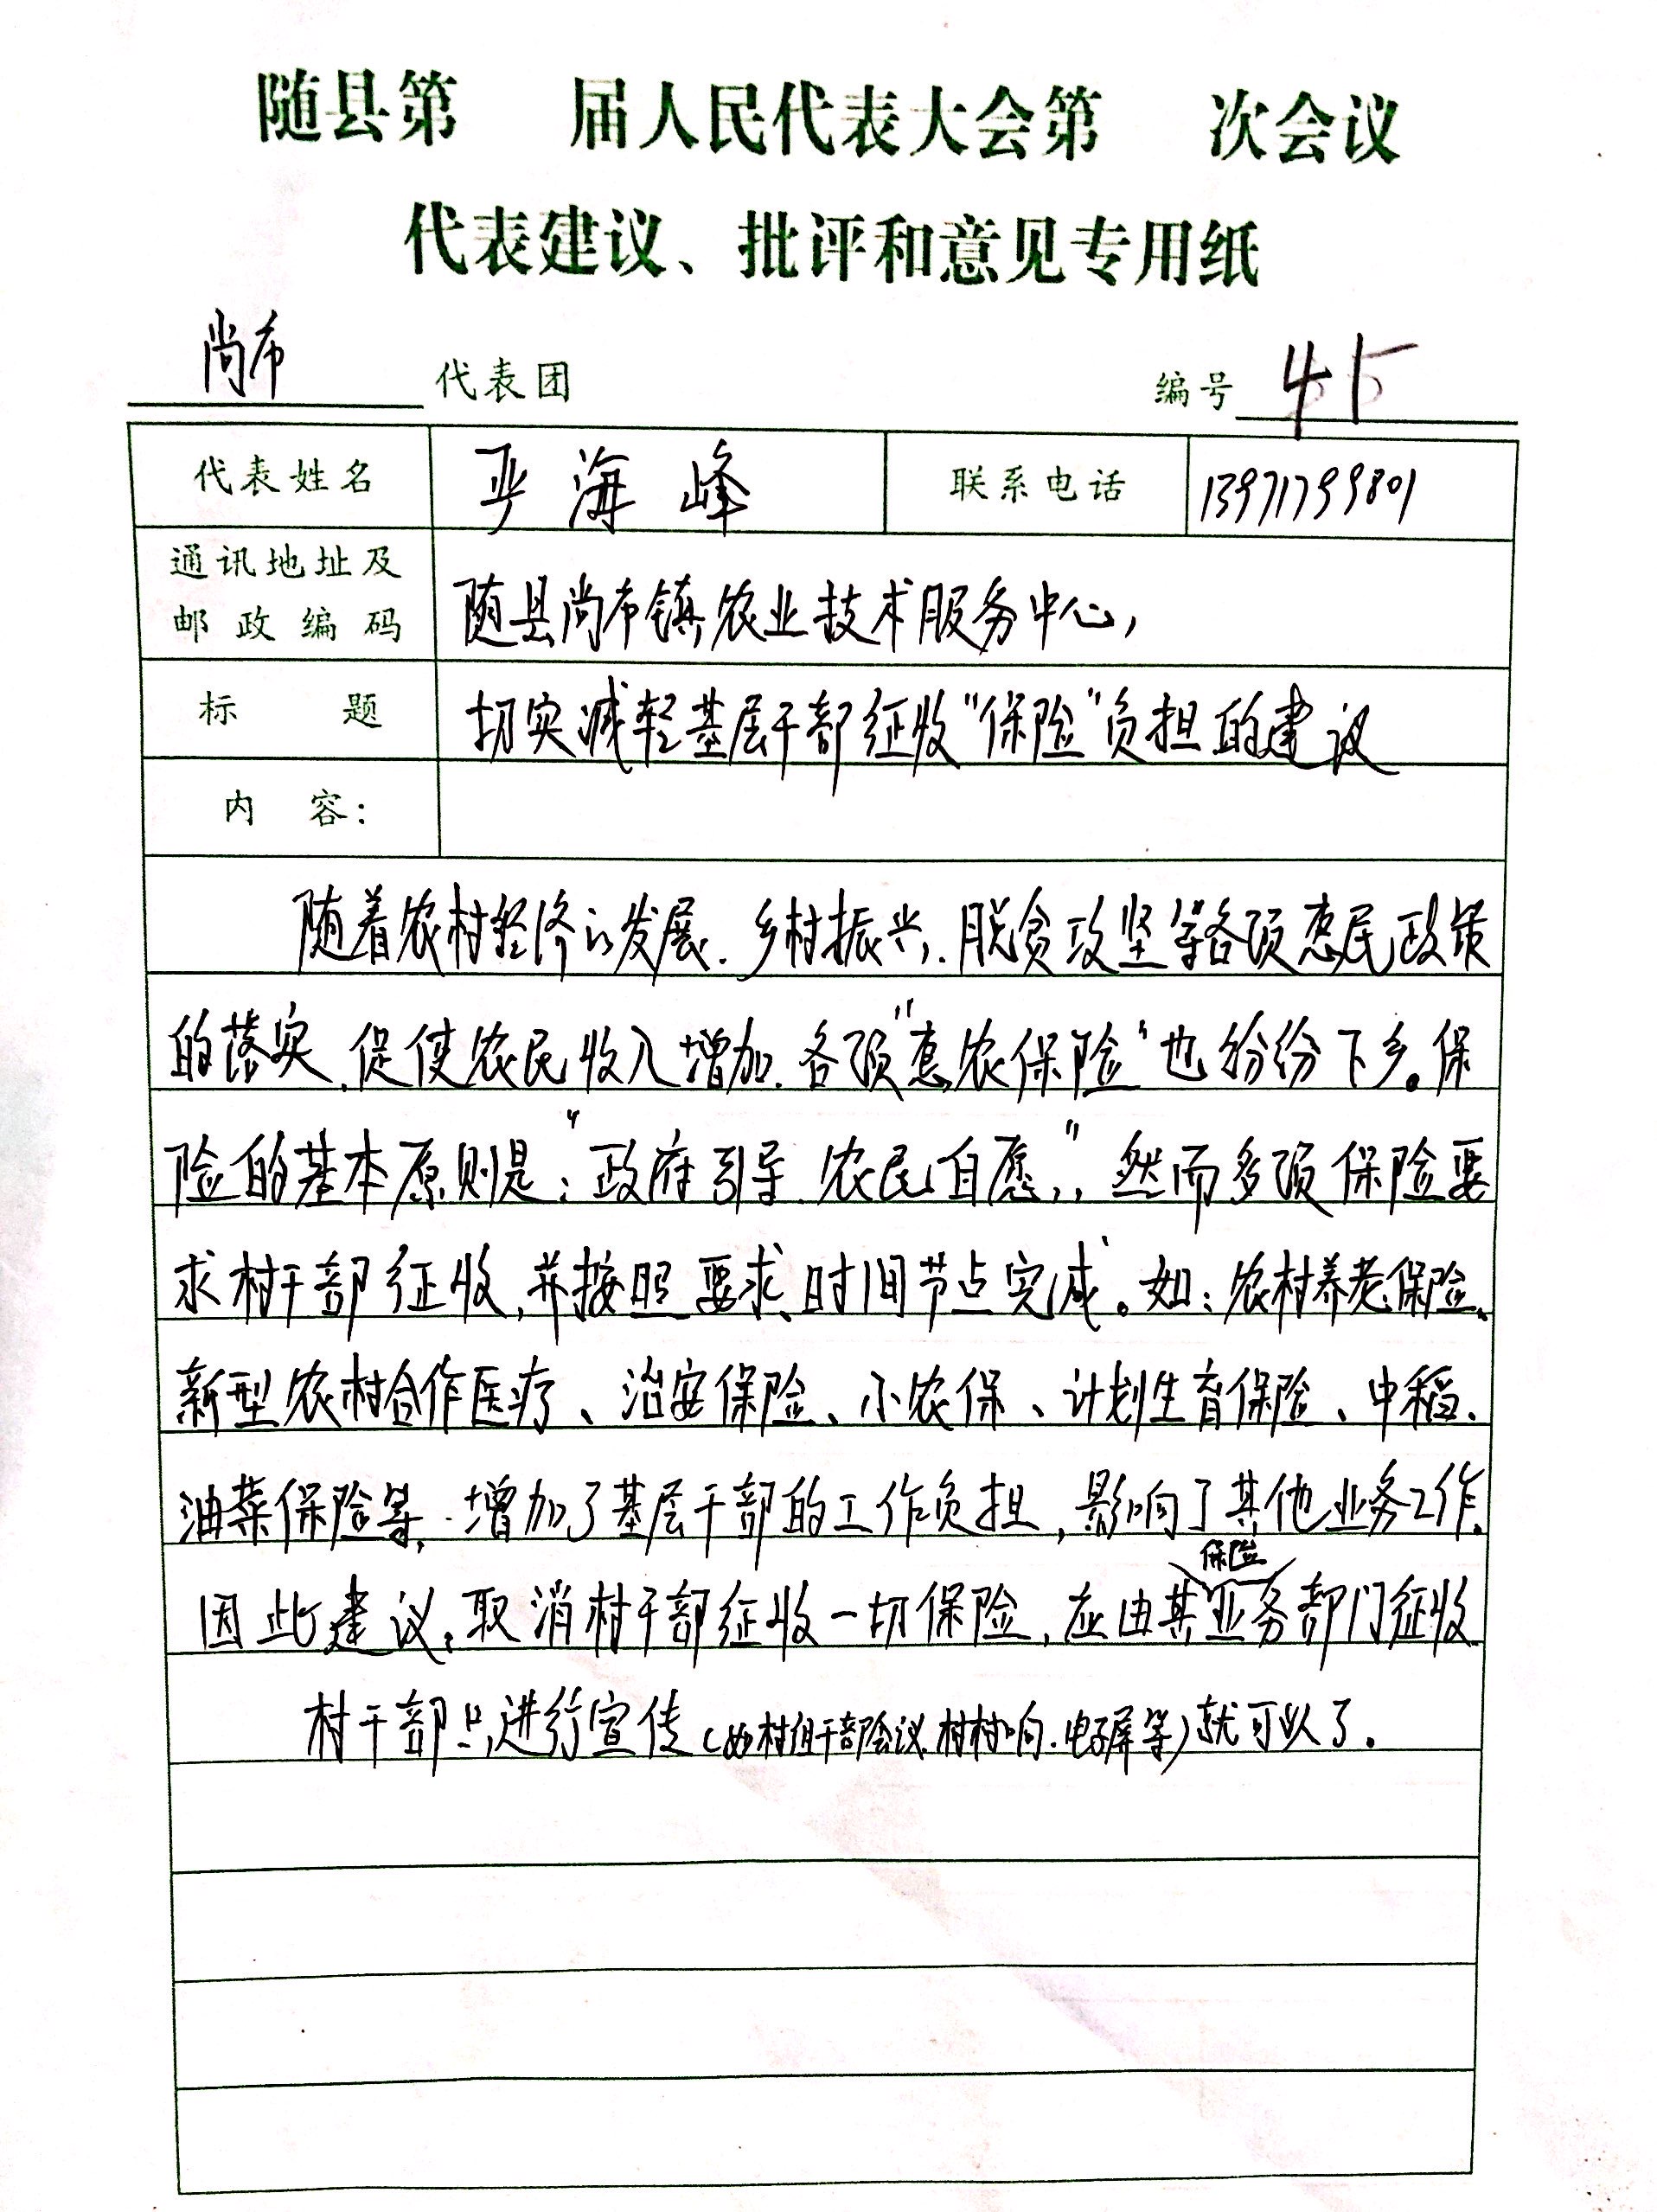 随县第 届人民代表大会第 次会议
代表建议、批评和意见专用纸
尚市 代表团 编号 45
代表姓名 严海峰 联系电话 13971799801
通讯地址及
邮政编码 随县尚市镇农业技术服务中心,
标 题 切实减轻基层干部征收“保险”负担的建议
内 容:
随着农村经济的发展.乡村振兴,.脱贫攻坚等各项惠民政策
的落实,促使农民收入增加.各项“惠农保险”也纷纷下乡。保
险的基本原则是:“政府引导.农民自愿”,然而多项保险要
求村干部征收,并按照要求、时间节点完成。如:农村养老保险、
新型农村合作医疗、治安保险、小农保、计划生育保险、中稻、
油菜保险等,.增加了基层干部的工作负担,影响了其他业务工作。
保险
因此建议:取消村干部征收一切保险,应由其业务部门征收
村干部只进行宣传(如村组干部会议.村村响.电子屏等)就可以了。